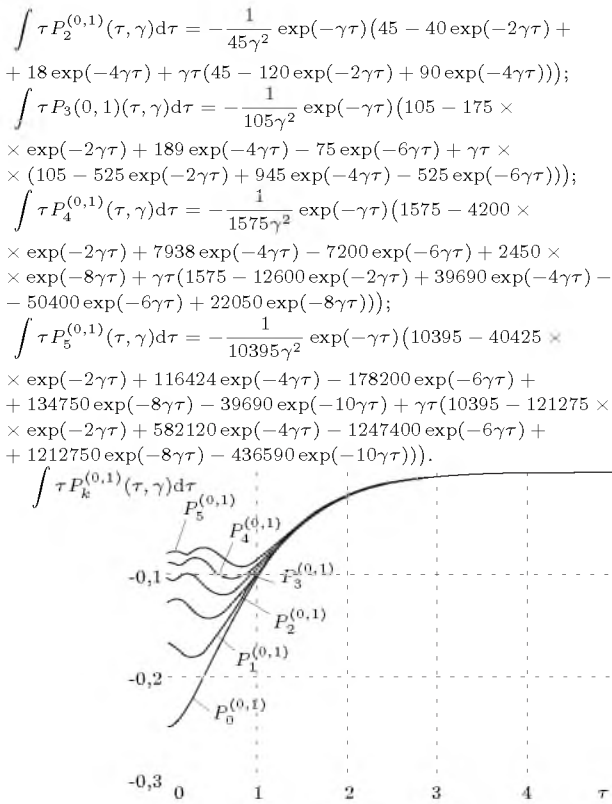 ∫ τP₂^(0,1)(τ, γ)dτ = −1/(45γ²) exp(−γτ)(45 − 40 exp(−2γτ) +
+ 18 exp(−4γτ) + γτ(45 − 120 exp(−2γτ) + 90 exp(−4γτ)));
∫ τP₃(0, 1)(τ, γ)dτ = −1/(105γ²) exp(−γτ)(105 − 175 ×
× exp(−2γτ) + 189 exp(−4γτ) − 75 exp(−6γτ) + γτ ×
× (105 − 525 exp(−2γτ) + 945 exp(−4γτ) − 525 exp(−6γτ)));
∫ τP₄^(0,1)(τ, γ)dτ = −1/(1575γ²) exp(−γτ)(1575 − 4200 ×
× exp(−2γτ) + 7938 exp(−4γτ) − 7200 exp(−6γτ) + 2450 ×
× exp(−8γτ) + γτ(1575 − 12600 exp(−2γτ) + 39690 exp(−4γτ) −
− 50400 exp(−6γτ) + 22050 exp(−8γτ)));
∫ τP₅^(0,1)(τ, γ)dτ = −1/(10395γ²) exp(−γτ)(10395 − 40425 ×
× exp(−2γτ) + 116424 exp(−4γτ) − 178200 exp(−6γτ) +
+ 134750 exp(−8γτ) − 39690 exp(−10γτ) + γτ(10395 − 121275 ×
× exp(−2γτ) + 582120 exp(−4γτ) − 1247400 exp(−6γτ) +
+ 1212750 exp(−8γτ) − 436590 exp(−10γτ))).
∫ τP_k^(0,1)(τ, γ)dτ
P₅^(0,1)
P₄^(0,1)
-0,1
P₃^(0,1)
P₂^(0,1)
P₁^(0,1)
-0,2
P₀^(0,1)
-0,3
0 1 2 3 4 τ